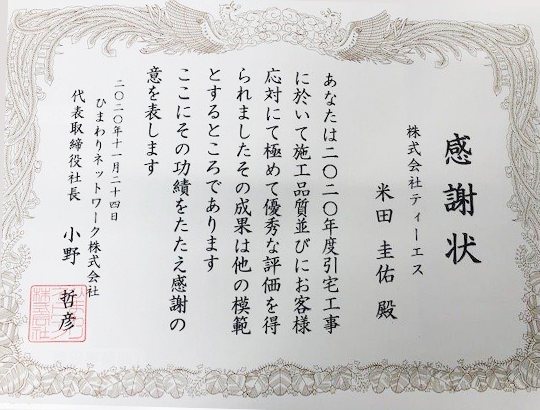 感謝状
株式会社ティーエス
米田 圭佑 殿
あなたは二〇二〇年度引宅工事
に於いて施工品質並びにお客様
応対にて極めて優秀な評価を得
られましたその成果は他の模範
とするところであります
ここにその功績をたたえ感謝の
意を表します
二〇二〇年十一月二十四日
ひまわりネットワーク株式会社
代表取締役社長 小野 哲彦